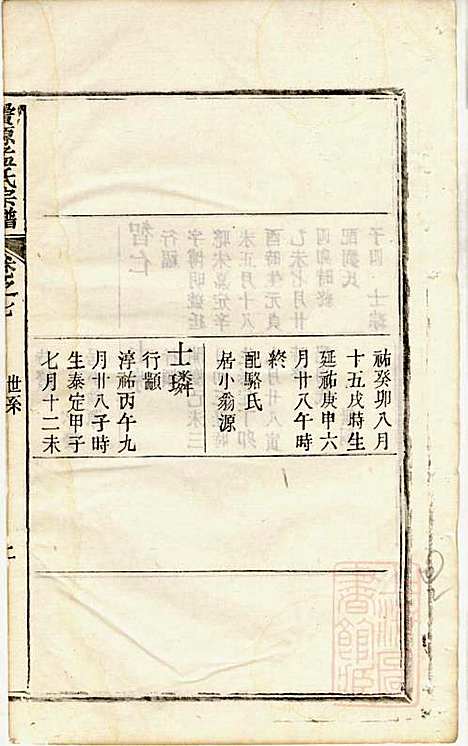 祐癸卯八月
十五戌時生
延祐庚申六
月廿八午時
終
配駱氏
居小翁源
士璘
行顯
淳祐丙午九
月廿八子時
生泰定甲子
七月十二未
氏宗譜
世系